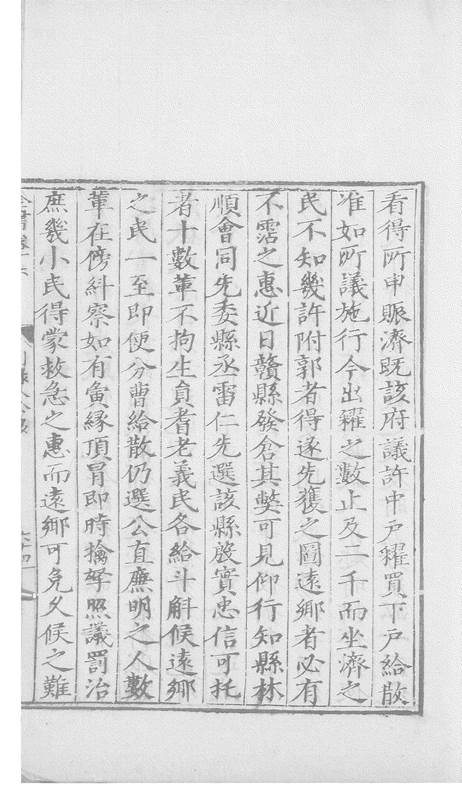 看得所申賑濟既該府議許中戶糴買下戶給散
准如所議施行今出糴之數止及二千而坐濟之
民不知幾許附郭者得遂先獲之圖遠鄉者必有
不霑之惠近日贛縣發倉其獘可見仰行知縣林
順會同先委縣丞雷仁先選該縣殷實忠信可托
者十數軰不拘生員耆老義民各給斗斛候遠鄉
之民一至即便分曹給散仍選公直廉明之人數
軰在傍糾察如有夤緣頂冐即時擒拏照議罰治
庶幾小民得蒙救急之惠而遠鄉可免久候之難